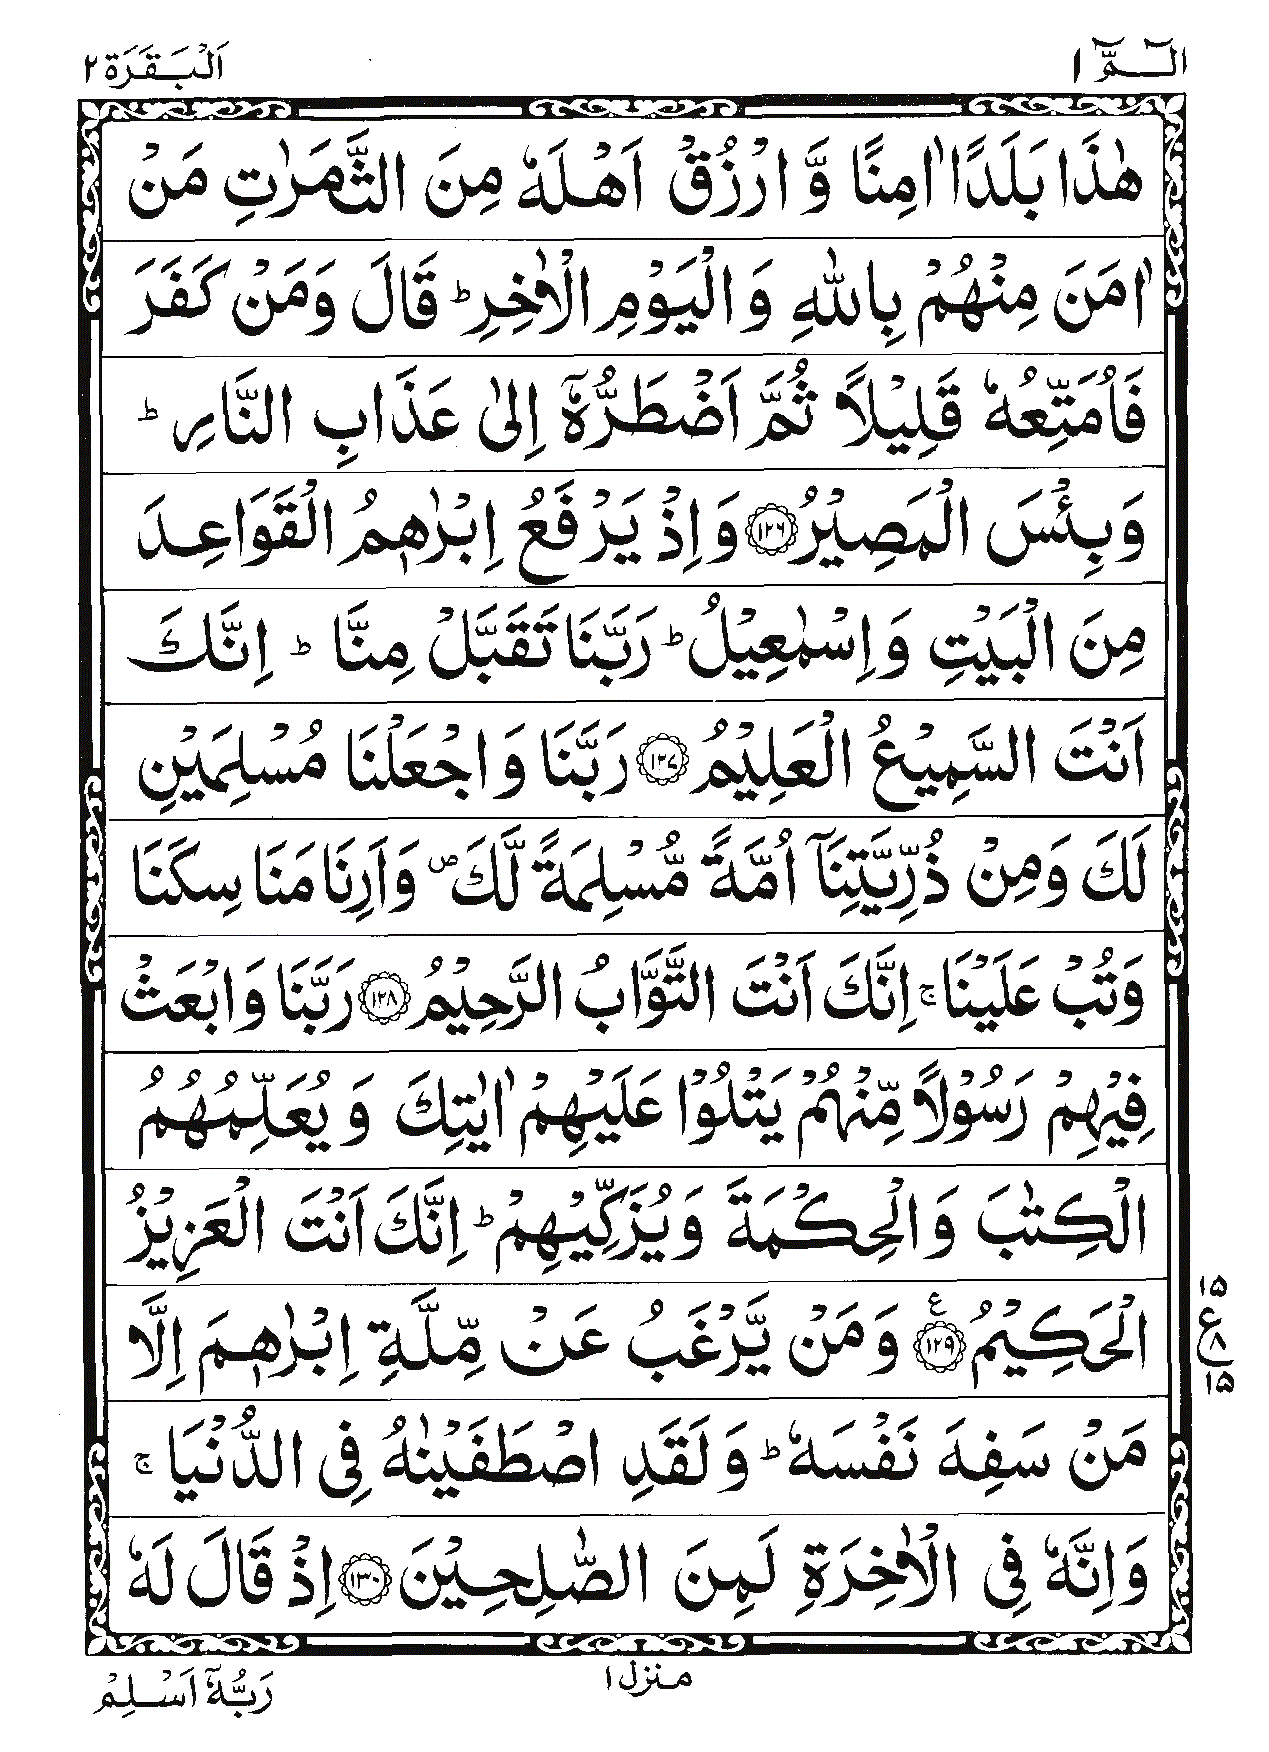 الٓـمّٓ ١
اَلْبَـقَـرَة ٢
هٰذَا بَلَدًا اٰمِنًا وَّ ارْزُقْ اَهْلَهٗ مِنَ الثَّمَرٰتِ مَنْ
اٰمَنَ مِنْهُمْ بِاللّٰهِ وَ الْيَوْمِ الْاٰخِرِ ؕ قَالَ وَمَنْ كَفَرَ
فَاُمَتِّعُهٗ قَلِيْلًا ثُمَّ اَضْطَرُّهٗۤ اِلٰى عَذَابِ النَّارِ ؕ
وَبِئْسَ الْمَصِيْرُ ۝١٢٦ وَ اِذْ يَرْفَعُ اِبْرٰهٖمُ الْقَوَاعِدَ
مِنَ الْبَيْتِ وَ اِسْمٰعِيْلُ ؕ رَبَّنَا تَقَبَّلْ مِنَّا ؕ اِنَّكَ
اَنْتَ السَّمِيْعُ الْعَلِيْمُ ۝١٢٧ رَبَّنَا وَ اجْعَلْنَا مُسْلِمَيْنِ
لَكَ وَمِنْ ذُرِّيَّتِنَاۤ اُمَّةً مُّسْلِمَةً لَّكَ ۪ وَاَرِنَا مَنَاسِكَنَا
وَتُبْ عَلَيْنَا ۚ اِنَّكَ اَنْتَ التَّوَّابُ الرَّحِيْمُ ۝١٢٨ رَبَّنَا وَ ابْعَثْ
فِيْهِمْ رَسُوْلًا مِّنْهُمْ يَتْلُوْا عَلَيْهِمْ اٰيٰتِكَ وَ يُعَلِّمُهُمُ
الْكِتٰبَ وَ الْحِكْمَةَ وَ يُزَكِّيْهِمْ ؕ اِنَّكَ اَنْتَ الْعَزِيْزُ
الْحَكِيْمُ ۝١٢٩ ع وَ مَنْ يَّرْغَبُ عَنْ مِّلَّةِ اِبْرٰهٖمَ اِلَّا
١٥
ع
٨
١٥
مَنْ سَفِهَ نَفْسَهٗ ؕ وَ لَقَدِ اصْطَفَيْنٰهُ فِى الدُّنْيَا ۚ
وَاِنَّهٗ فِى الْاٰخِرَةِ لَمِنَ الصّٰلِحِيْنَ ۝١٣٠ اِذْ قَالَ لَهٗ
منزل ١
رَبُّهٗۤ اَسْلِمْ